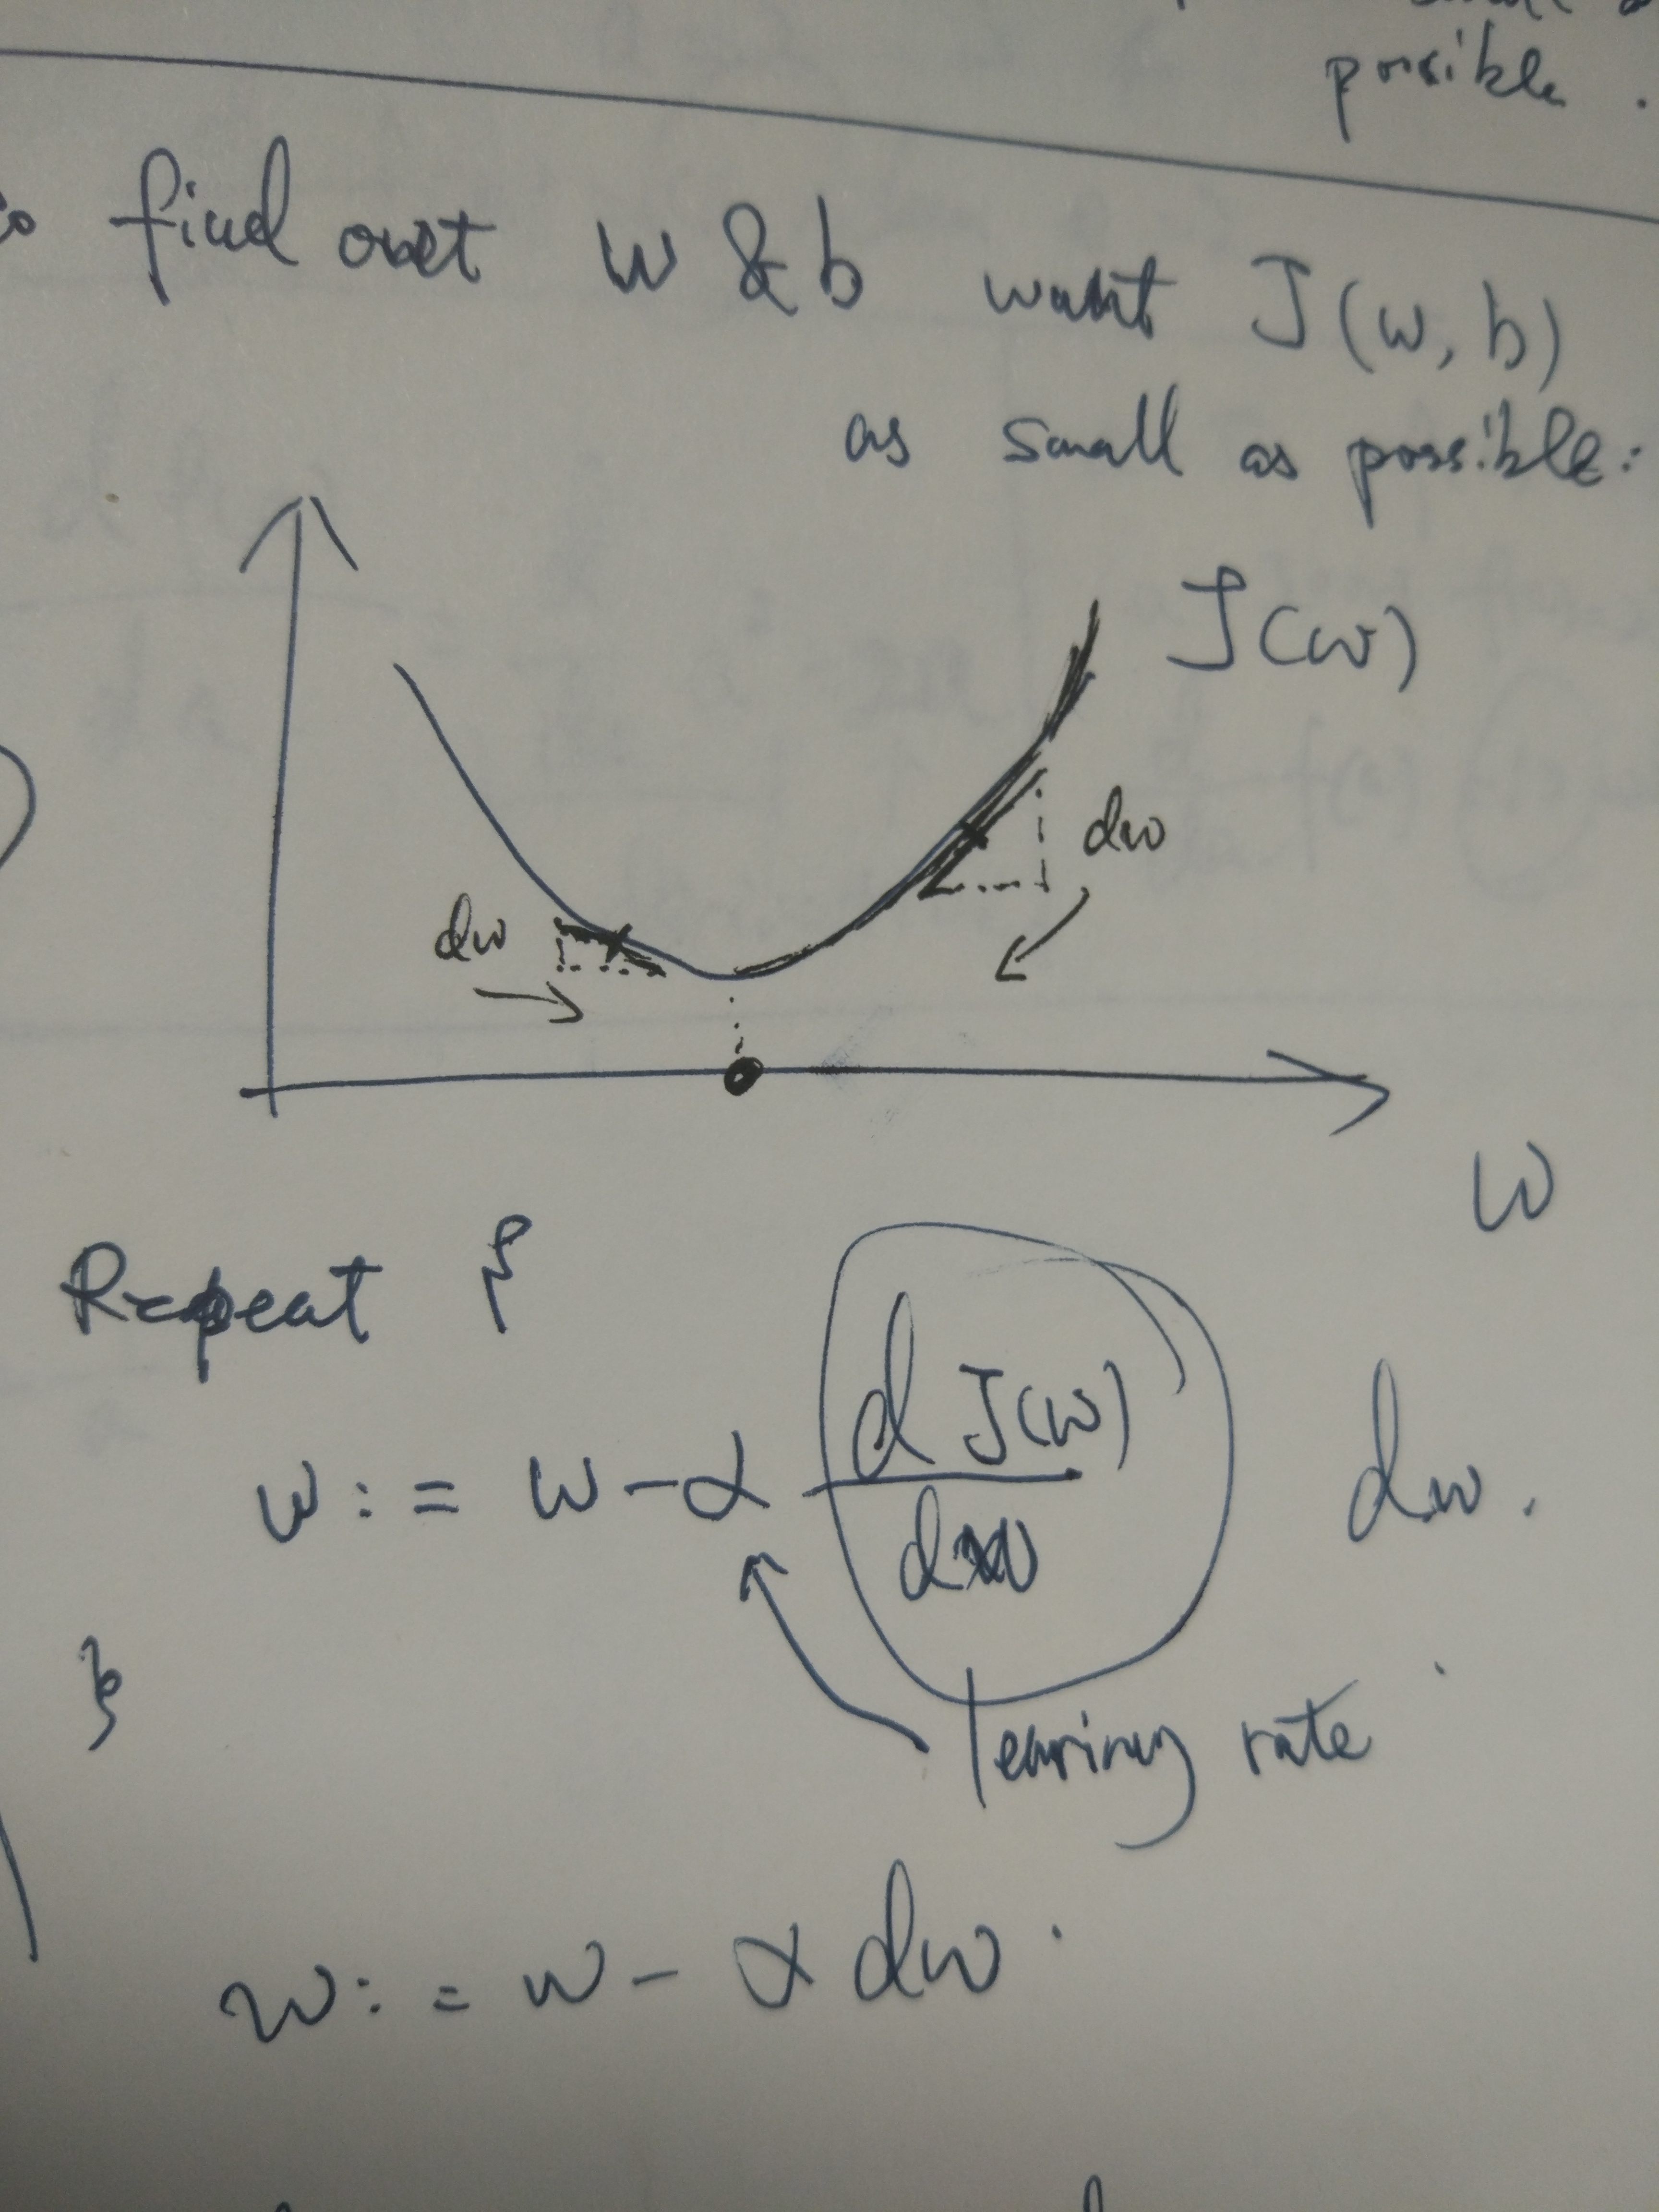 possible.
find out w & b want J(w, b)
as small as possible:
J(w)
dw
dw
w
Repeat {
w := w - α d J(w) / dw dw.
}
learing rate
w := w - α dw.